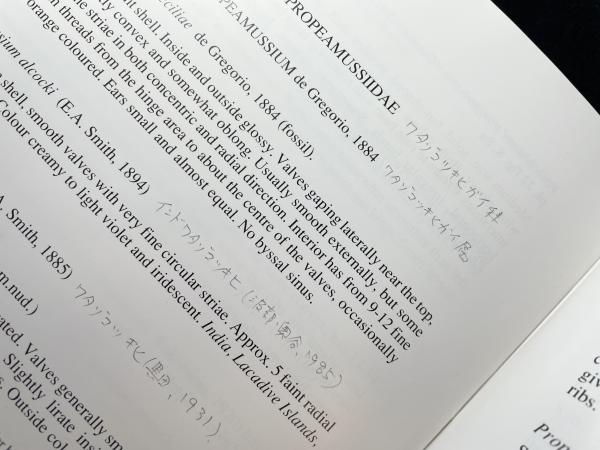 PROPEAMUSSIIDAE ワタゾコツキヒガイ科
PEAMUSSIUM de Gregorio, 1884 ワタゾコツキヒガイ属
ciliae de Gregorio, 1884 (fossil).
shell. Inside and outside glossy. Valves gaping laterally near the top,
convex and somewhat oblong. Usually smooth externally, but some
striae in both concentric and radial direction. Interior has from 9-12 fine
threads from the hinge area to about the centre of the valves, occasionally
orange coloured. Ears small and almost equal. No byssal sinus.
alcocki (E.A. Smith, 1894) インドワタゾコツキヒ (波部・奥谷, 1985)
shell, smooth valves with very fine circular striae. Approx. 5 faint radial
Colour creamy to light violet and iridescent. India, Lacadive Islands,
A. Smith, 1885) ワタゾコツキヒ (黒田, 1931).
m.nud.)
ated. Valves generally sm
Slightly lirate insi
Outside col
giv
ribs.
Prop